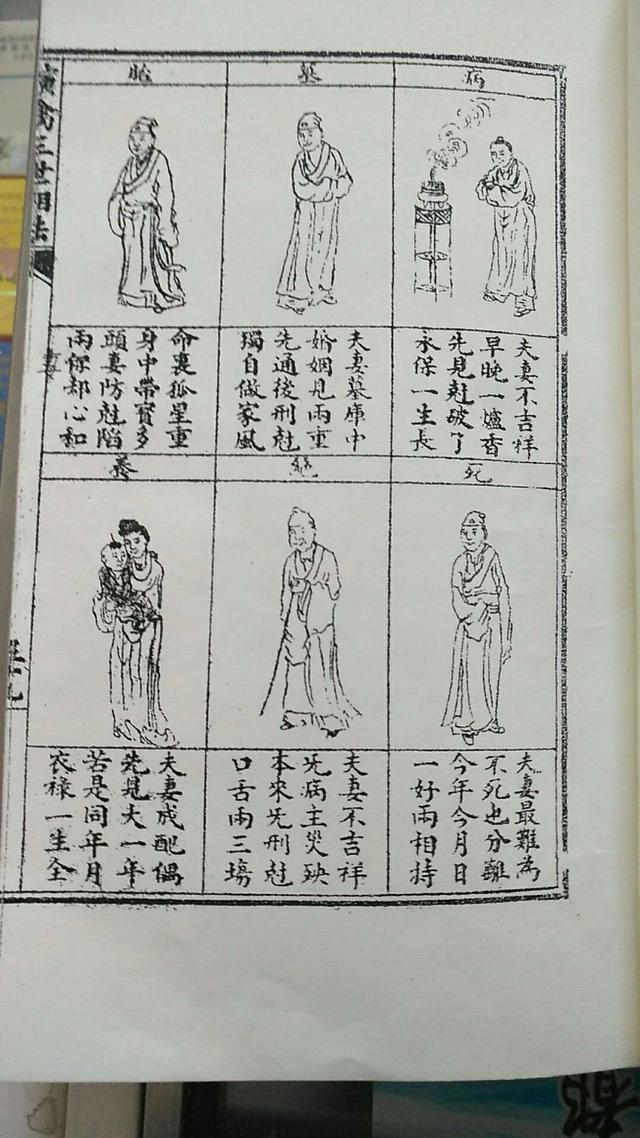 病
夫妻不吉祥
早晚一爐香
先見尅破了
永保一生長
墓
夫妻墓庫中
婚姻見兩重
先通後刑尅
獨自做家風
胎
命裏孤星重
身中帶寳多
頭妻防尅陷
兩保却心和
死
夫妻最難為
不死也分離
今年今月日
一好兩相持
絕
夫妻不吉祥
先病主災殃
本來先刑尅
口舌兩三塲
養
夫妻成配偶
先見大一年
若是同年月
衣祿一生全
演禽三世相法
都